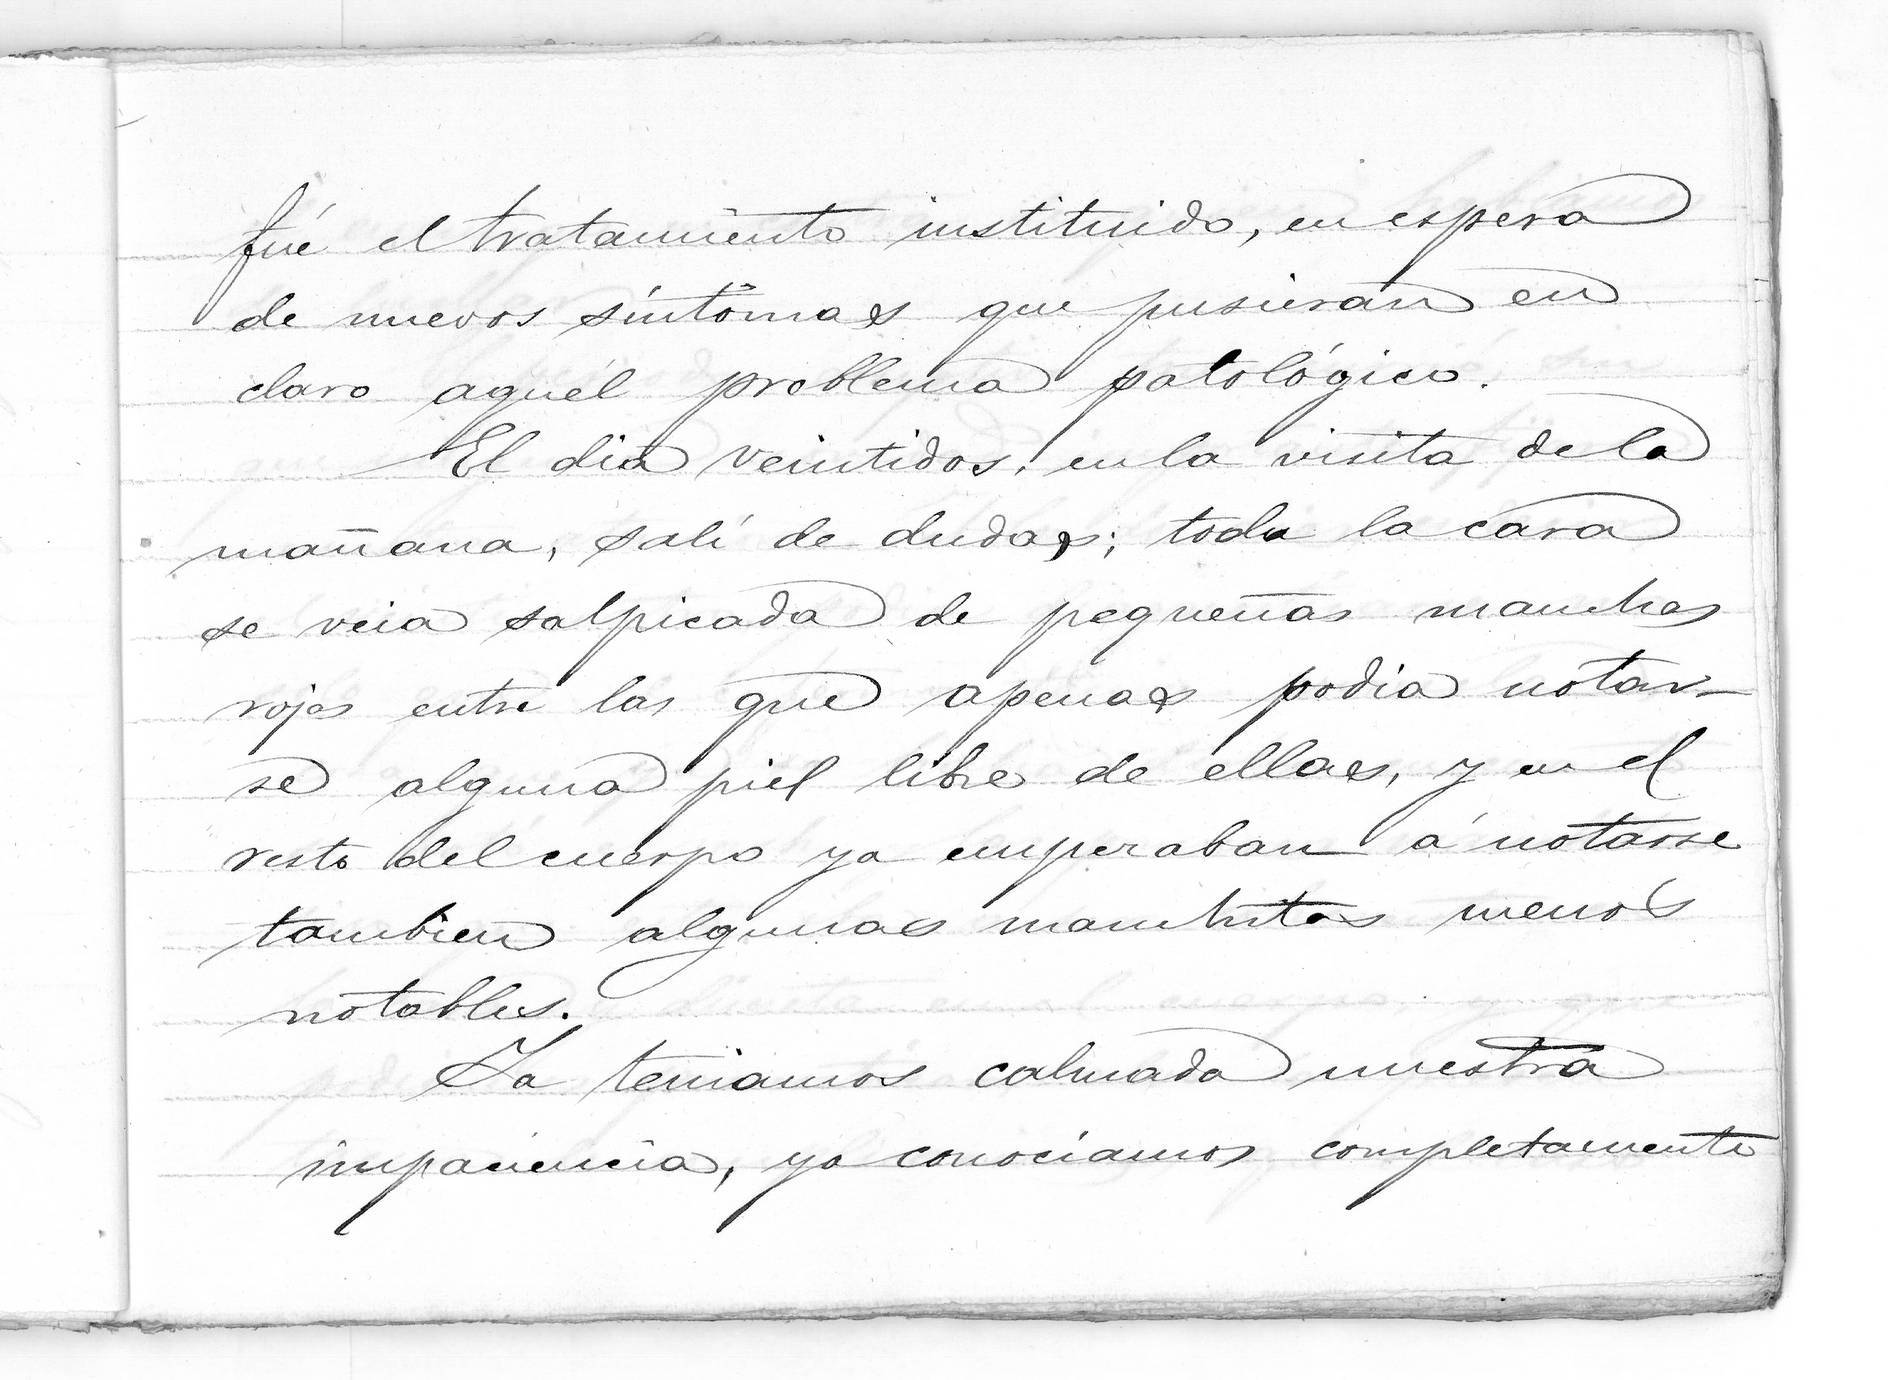 fué el tratamiento instituido, en espera
de nuevos síntomas que pusieran en
claro aquél problema patológico.
El dia veintidos, en la visita de la
mañana, salí de dudas; toda la cara
se veia salpicada de pequeñas manchas
rojas entre las que apenas podia notar-
se alguna piel libre de ellas, y en el
resto del cuerpo ya empezaban á notarse
tambien algunas manchitas menos
notables.
Ya teniamos calmada nuestra
impaciencia, ya conociamos completamente